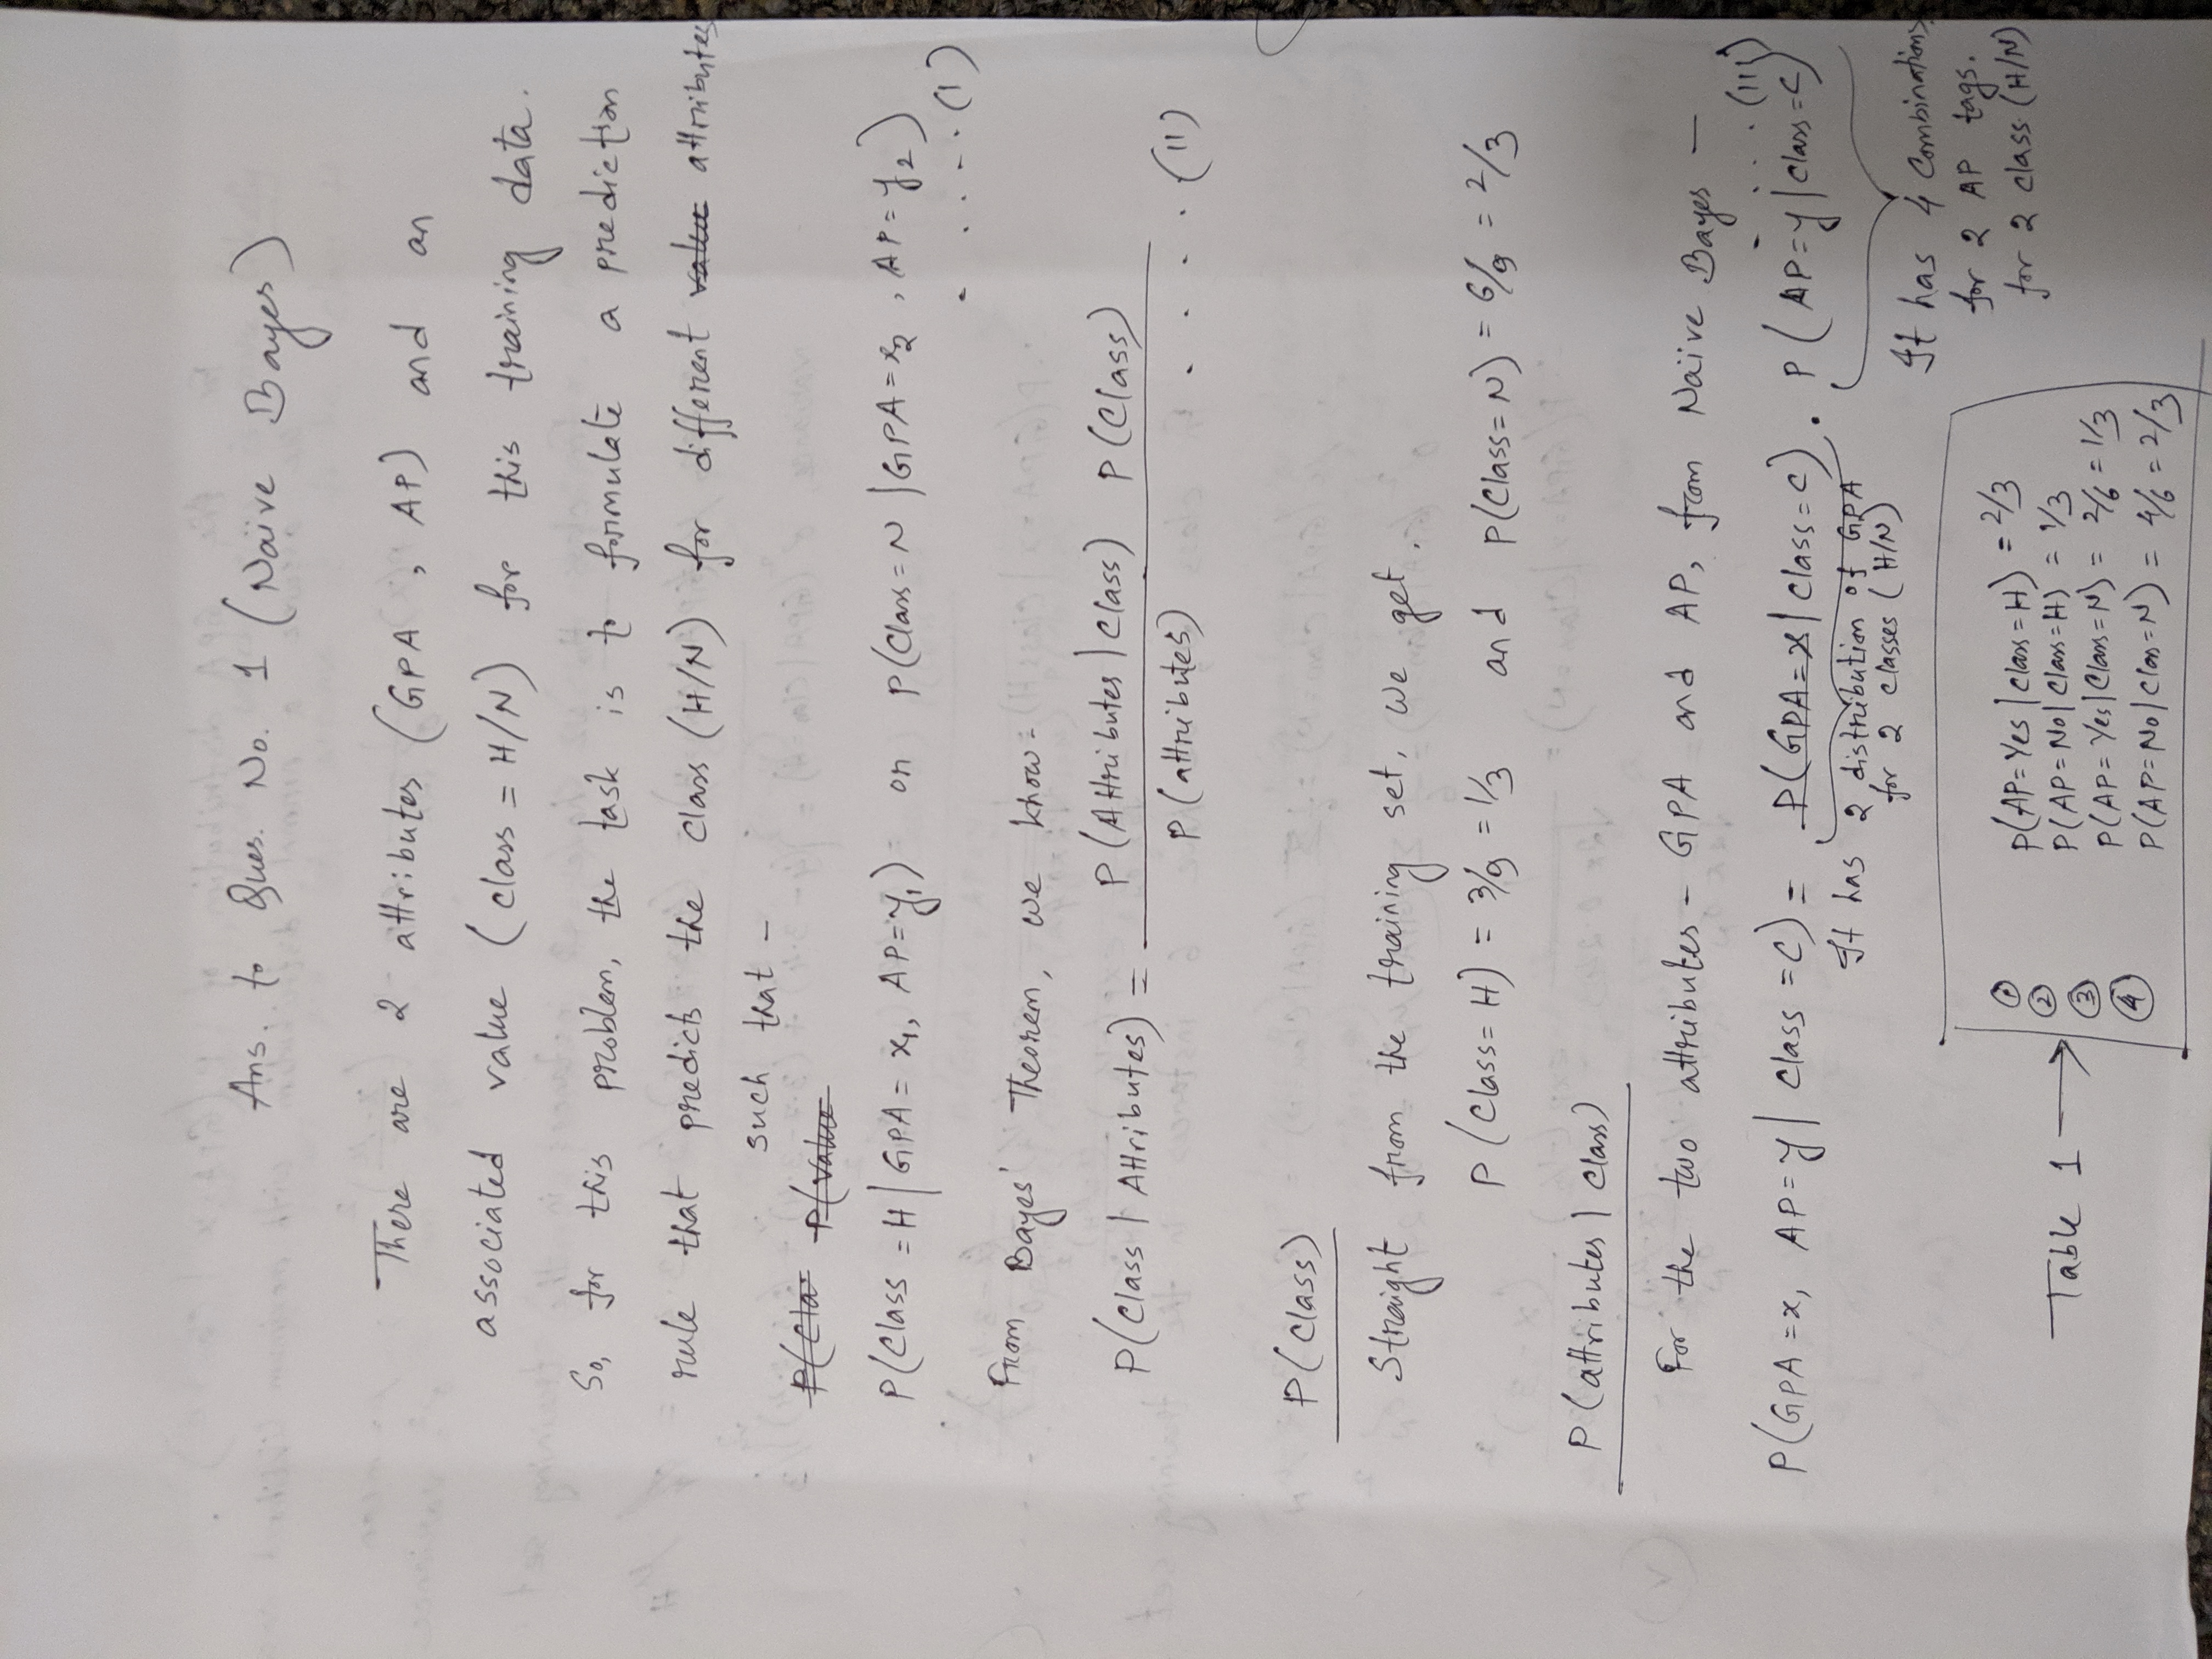 Ans. to Ques. No. 1 (Naïve Bayes)
There are 2 attributes (GPA, AP) and an
associated value (class = H/N) for this training data.
So, for this problem, the task is to formulate a prediction
rule that predicts the class (H/N) for different value attributes
such that -
P(Cla P(value
P(Class = H | GPA = x₁, AP = y₁) or P(Class = N | GPA = x₂, AP = y₂)
. .... (I)
From Bayes' Theorem, we know -
P(Class | Attributes) = P(Attributes | Class) P(Class)
P(attributes) . . . . . (II)
P(Class)
Straight from the training set, we get,
P(Class = H) = 3/9 = 1/3 and P(Class = N) = 6/9 = 2/3
P(attributes | Class)
For the two attributes - GPA and AP, from Naïve Bayes —
- . . . (III)
P(GPA = x, AP = y | Class = C) = P(GPA = x | Class = C) . P(AP = y | Class = C)
It has 2 distribution of GPA
for 2 classes (H/N)
It has 4 Combinations
for 2 AP tags.
for 2 class (H/N)
① P(AP = Yes | Class = H) = 2/3
② P(AP = No | Class = H) = 1/3
Table 1 →
③ P(AP = Yes | Class = N) = 2/6 = 1/3
④ P(AP = No | Clas = N) = 4/6 = 2/3